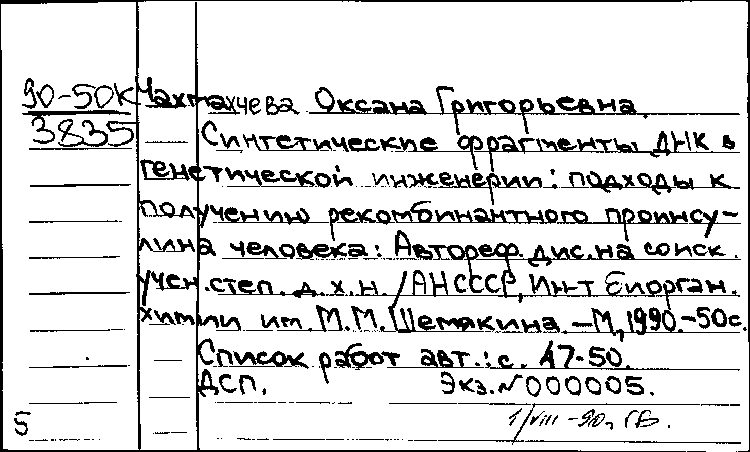 90-50К Чахмахчева Оксана Григорьевна.
3835 Синтетические фрагменты ДНК в
генетической инженерии: подходы к
получению рекомбинантного проинсу-
лина человека: Автореф. дис. на соиск.
учен. степ. д.х.н. /АН СССР, Ин-т биорган.
химии им. М.М. Шемякина. -М, 1990.-50с.
Список работ авт.: с. 47-50.
ДСП. Экз.№000005.
5 1/VIII-90, ГБ.